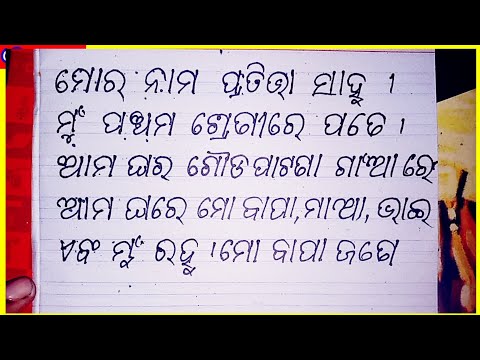 ମୋର ନାମ ପ୍ରତିଭା ସାହୁ ।
ମୁଁ ପଞ୍ଚମ ଶ୍ରେଣୀରେ ପଢେ ।
ଆମ ଘର ଗୌଡପାଟଣା ଗାଁଆ ରେ
ଆମ ଘରେ ମୋ ବାପା, ମାଆ, ଭାଇ
ଏବଂ ମୁଁ ରହୁ । ମୋ ବାପା ଜଣେ